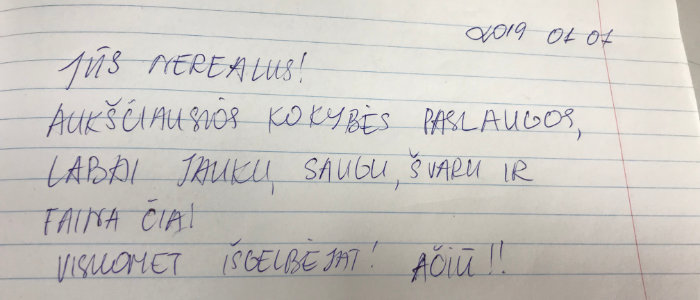 2019 01 01
JŪS NEREALUS!
AUKŠČIAUSIOS KOKYBĖS PASLAUGOS,
LABAI JAUKU, SAUGU, ŠVARU IR
FAINA ČIA!
VISUOMET IŠGELBĖJAT! AČIŪ!!